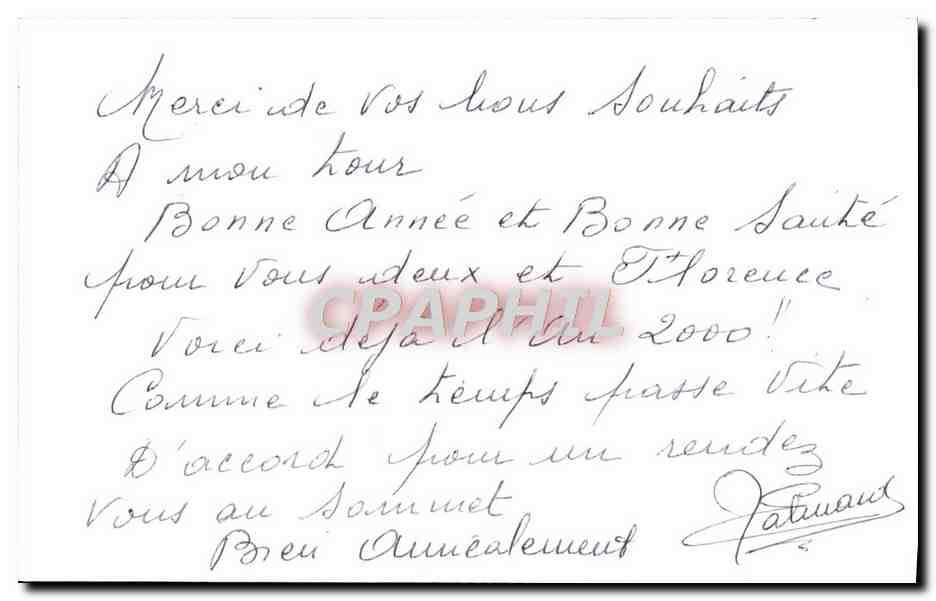 Merci de vos bons souhaits
A mon tour
Bonne Année et Bonne Santé
pour vous deux et Florence
CPAPHIL
Voici déjà l'An 2000!!
Comme le temps passe vite
D'accord pour un rendez
vous au sommet
Bien Amicalement